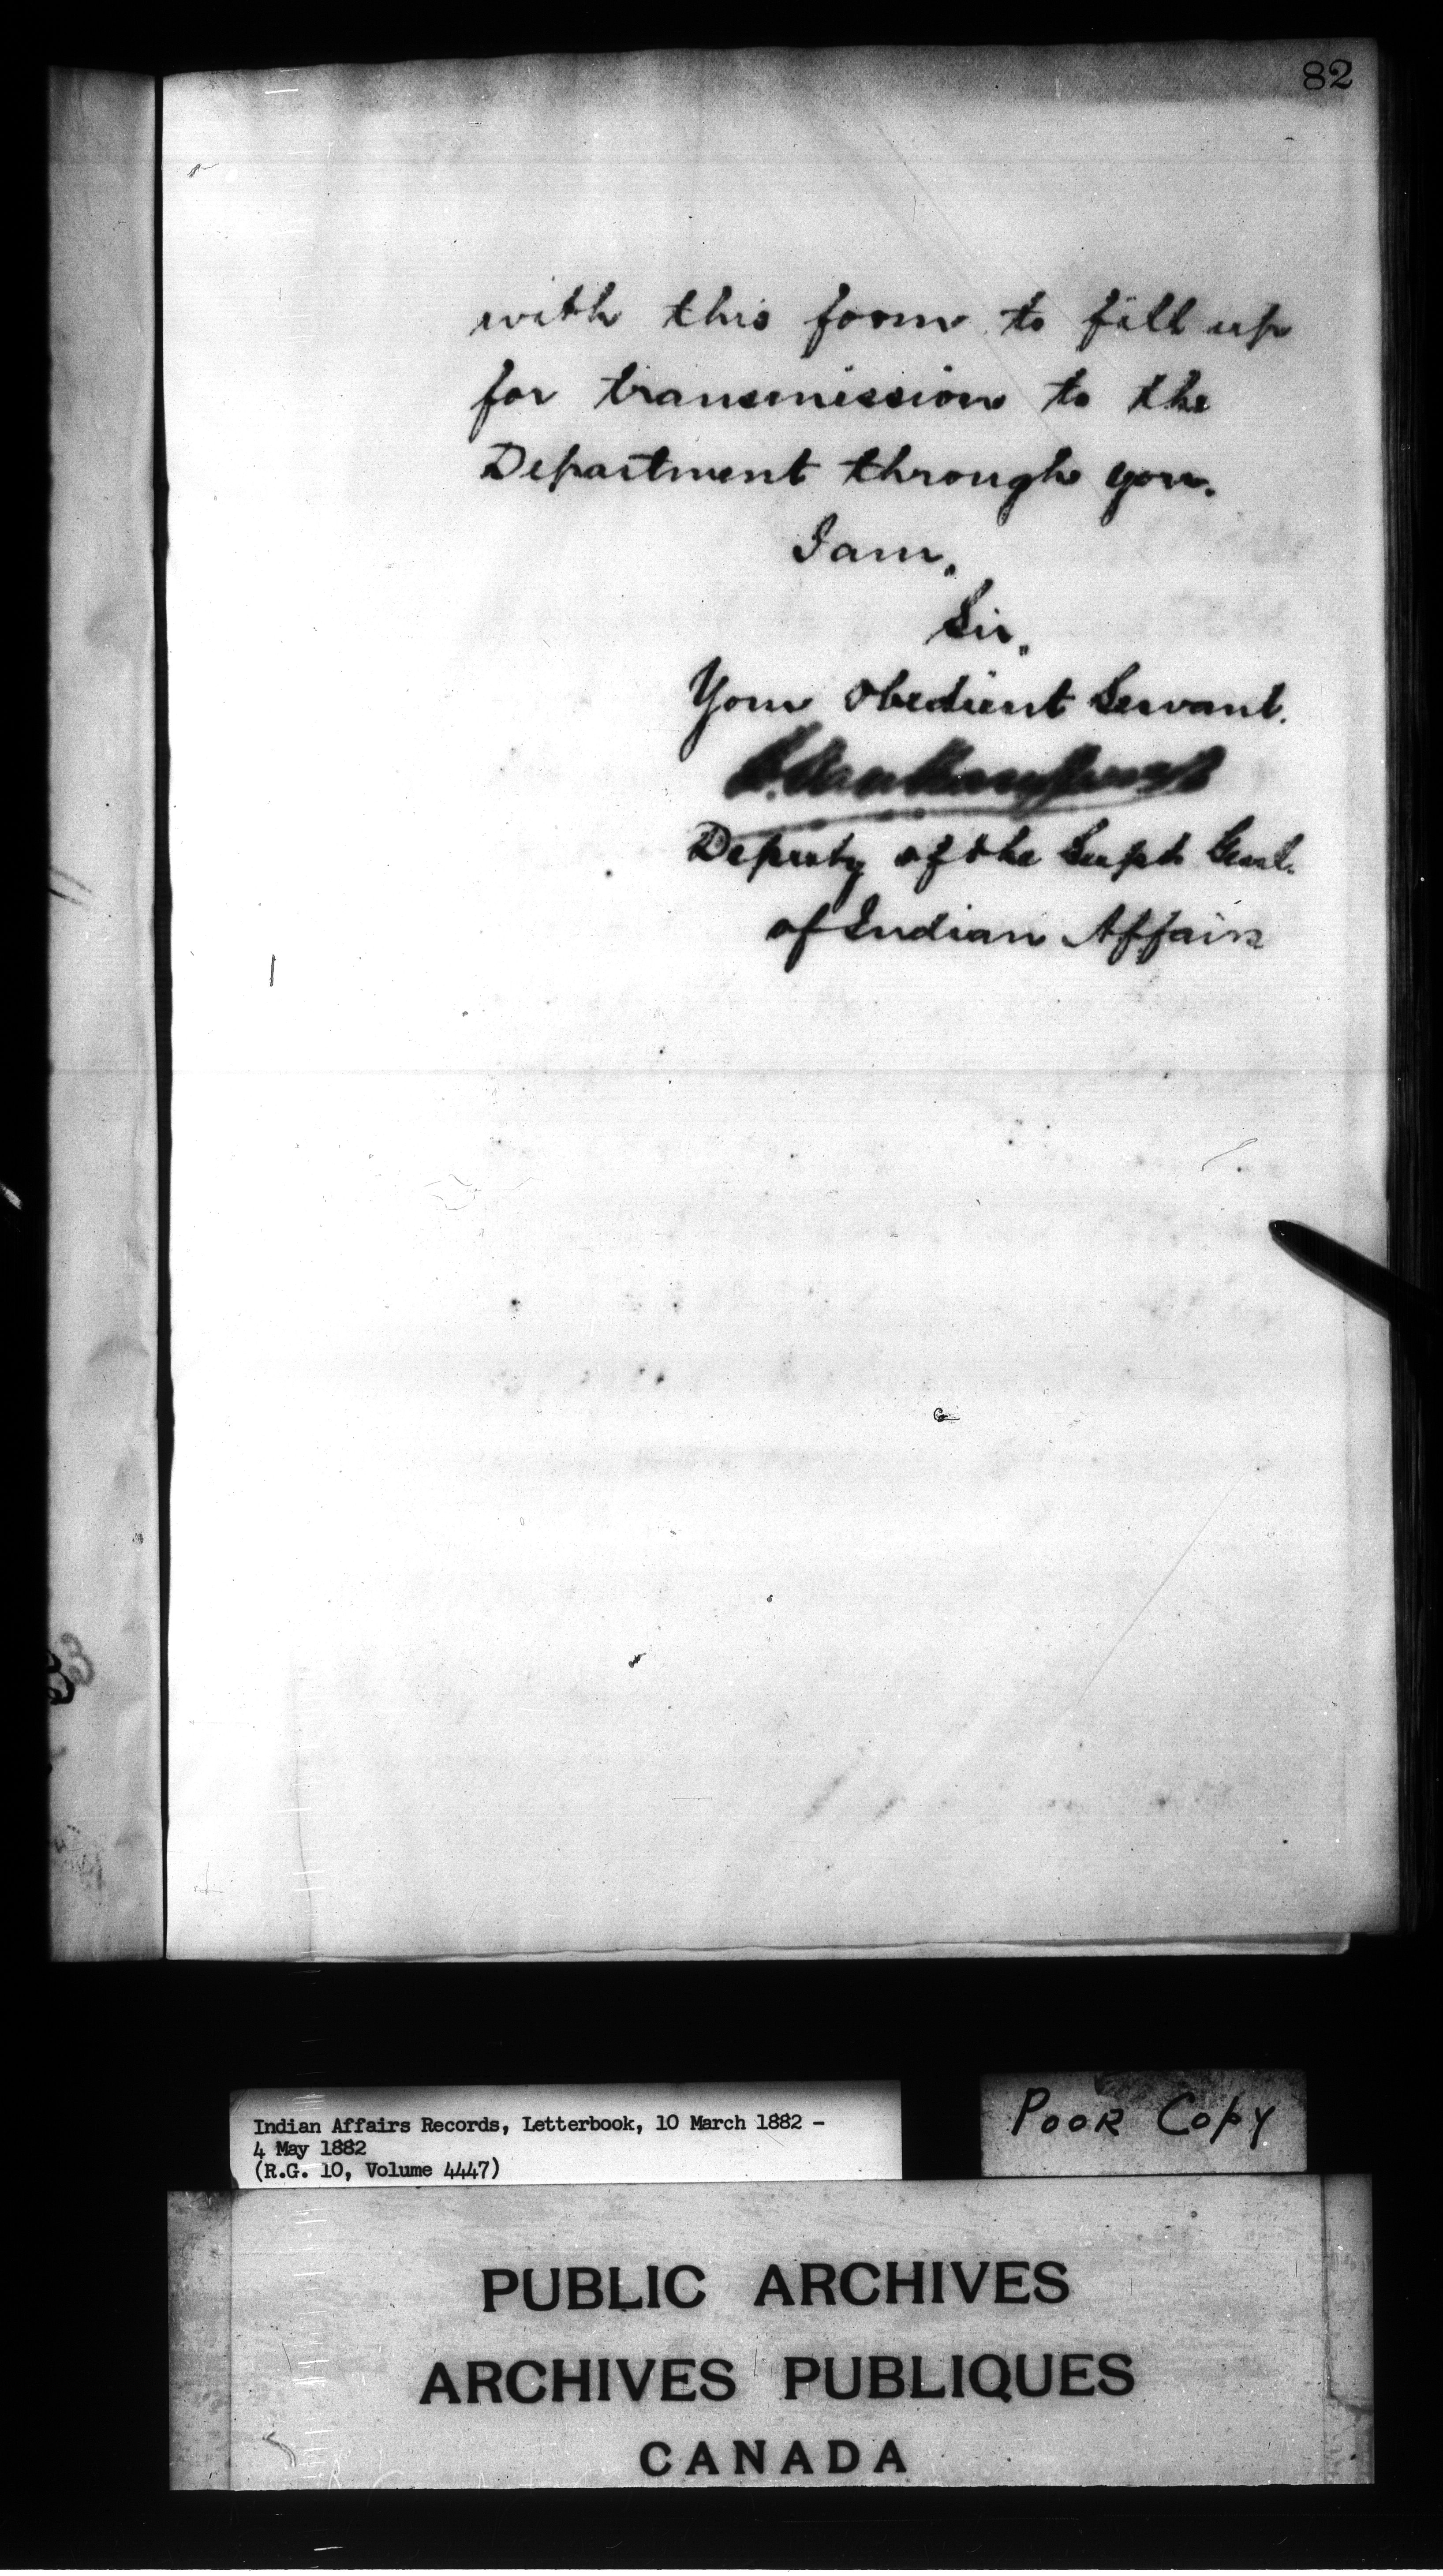 82
with this form to fill up
for transmission to the
Department through you.
I am,
Sir,
Your Obedient Servant.
Deputy of the Supt Genl.
of Indian Affairs
Indian Affairs Records, Letterbook, 10 March 1882 -
4 May 1882
(R.G. 10, Volume 4447)
POOR COPY
PUBLIC ARCHIVES
ARCHIVES PUBLIQUES
CANADA